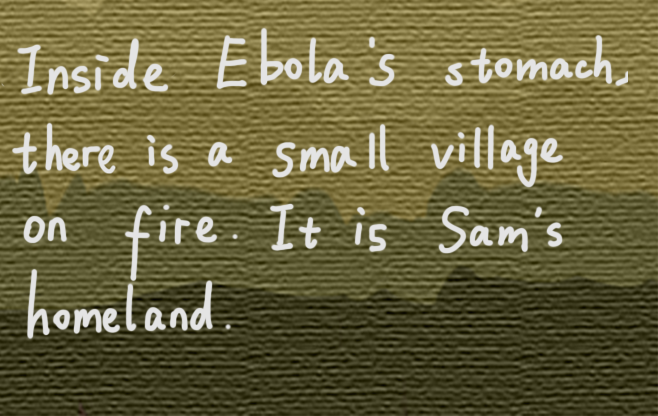 Inside Ebola's stomach,
there is a small village
on fire. It is Sam's
homeland.